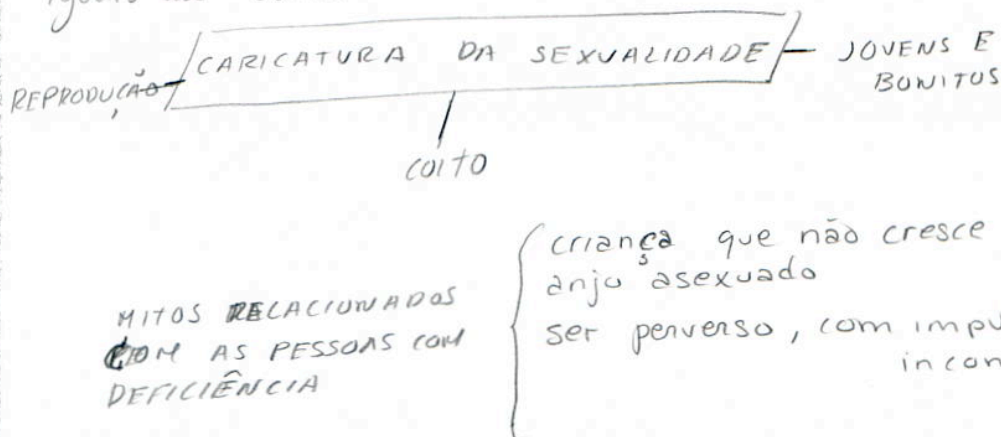 CARICATURA DA SEXUALIDADE
REPRODUÇÃO
JOVENS E
BONITOS
COITO
MITOS RELACIONADOS
COM AS PESSOAS COM
DEFICIÊNCIA
criança que não cresce
anjo asexuado
ser perverso, com impu
incon